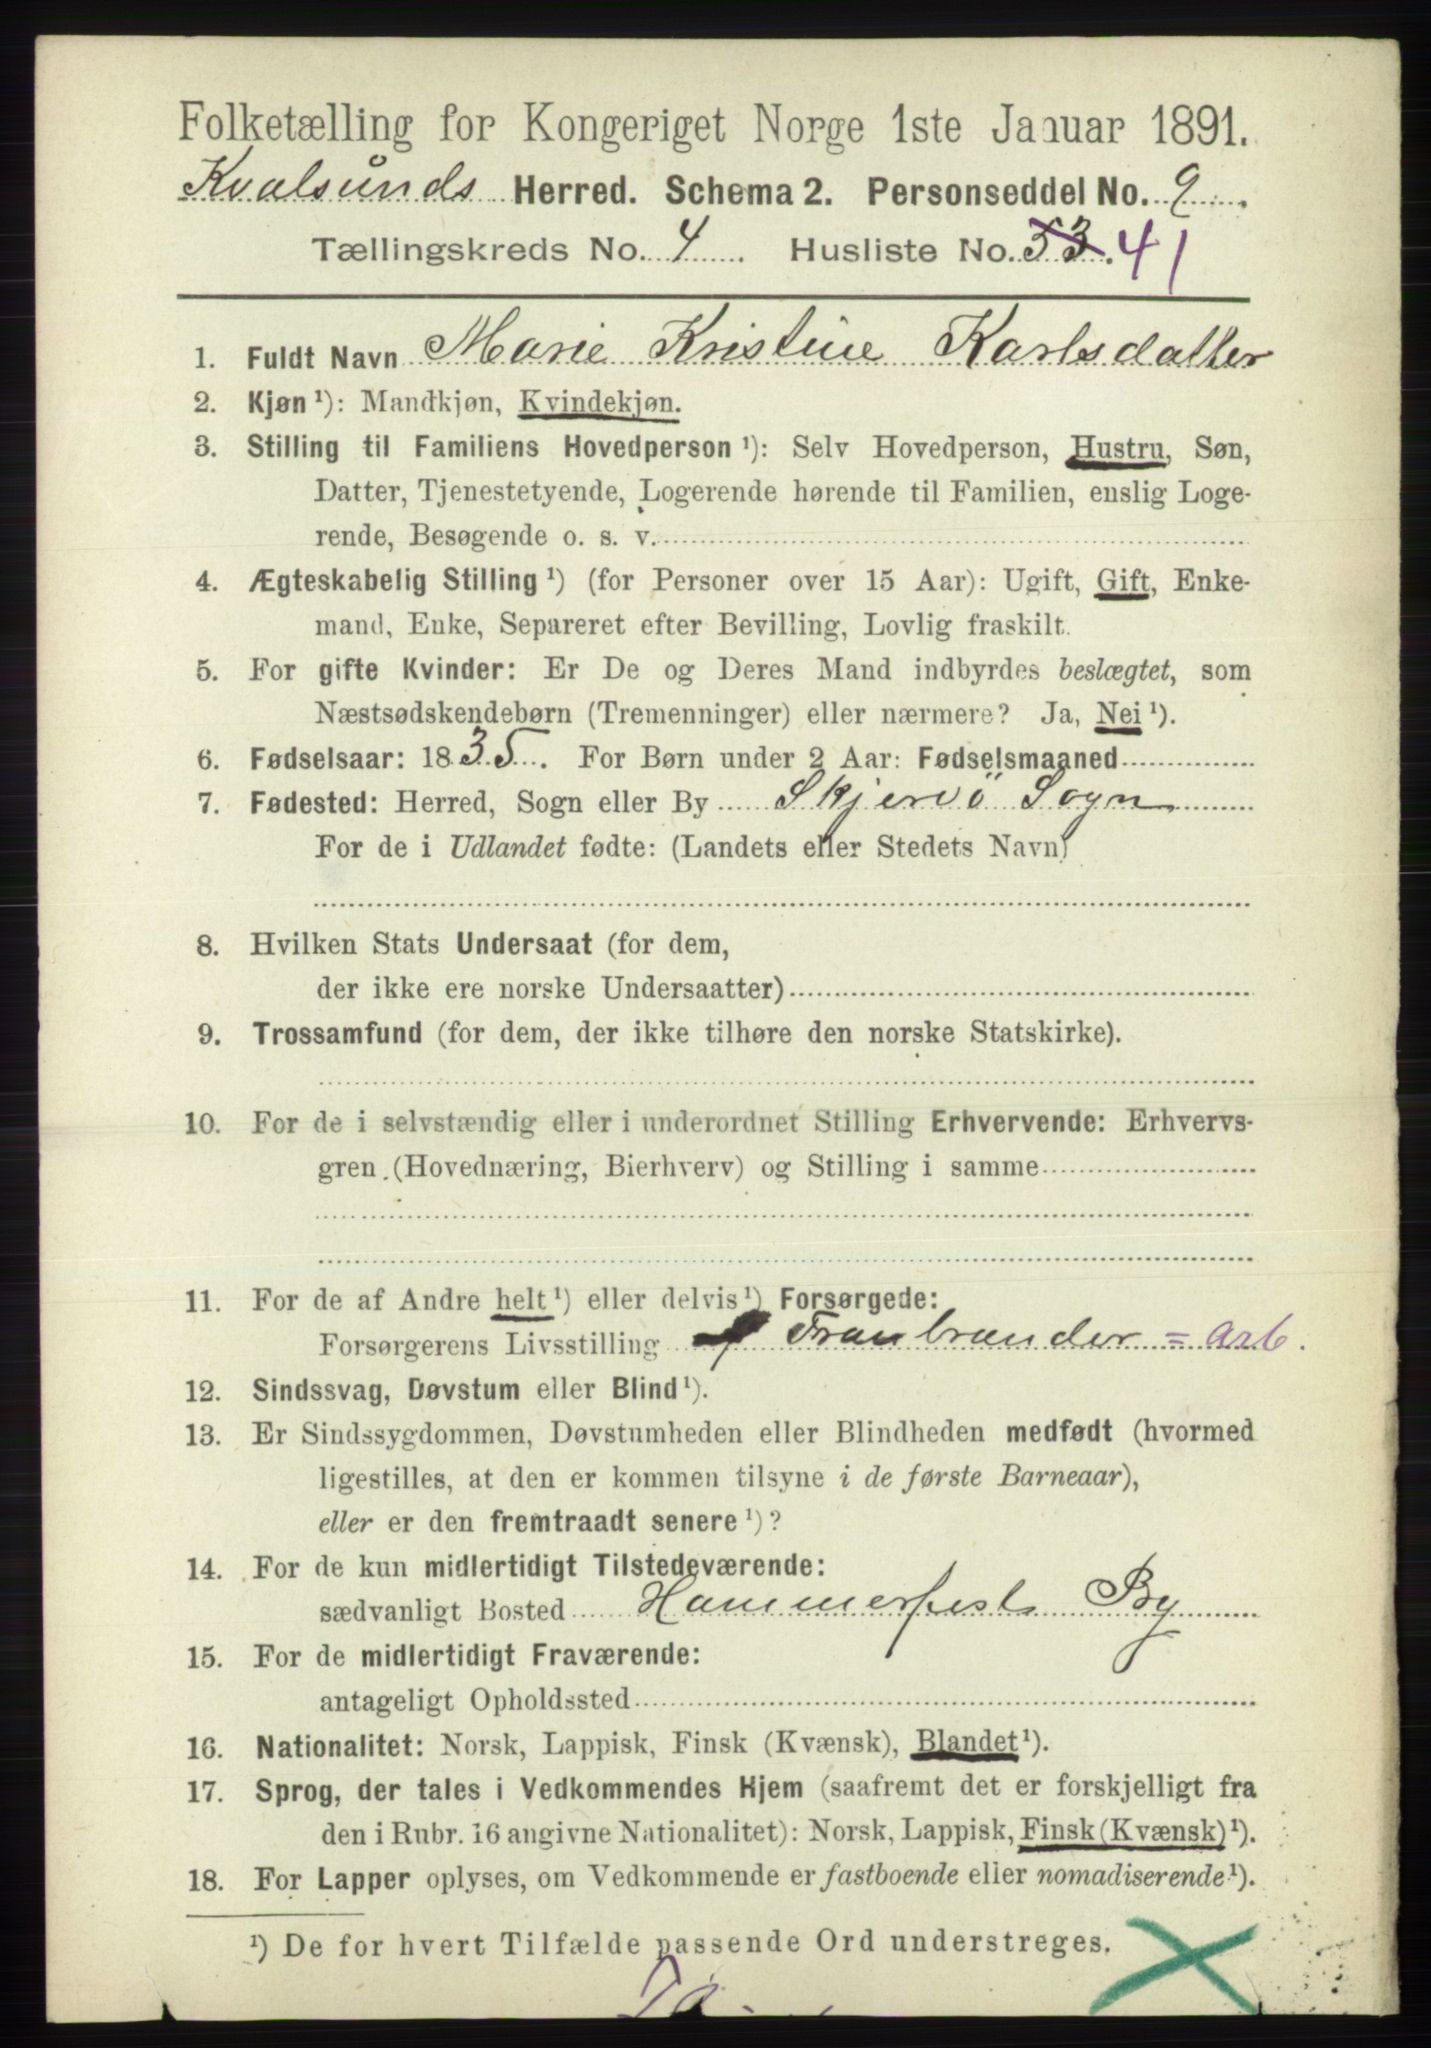 Folketælling for Kongeriget Norge 1ste Januar 1891.
Kvalsunds Herred. Schema 2. Personseddel No. 9
Tællingskreds No. 4 Husliste No. 53. 41
1. Fuldt Navn Marie Kristine Karlsdatter
2. Kjøn ¹): Mandkjøn, Kvindekjøn.
3. Stilling til Familiens Hovedperson ¹): Selv Hovedperson, Hustru, Søn,
Datter, Tjenestetyende, Logerende hørende til Familien, enslig Loge-
rende, Besøgende o. s. v.
4. Ægteskabelig Stilling ¹) (for Personer over 15 Aar): Ugift, Gift, Enke-
mand, Enke, Separeret efter Bevilling, Lovlig fraskilt.
5. For gifte Kvinder: Er De og Deres Mand indbyrdes beslægtet, som
Næstsødskendebørn (Tremenninger) eller nærmere? Ja, Nei ¹).
6. Fødselsaar: 1835. For Børn under 2 Aar: Fødselsmaaned
7. Fødested: Herred, Sogn eller By Skjervö Sogn
For de i Udlandet fødte: (Landets eller Stedets Navn)
8. Hvilken Stats Undersaat (for dem,
der ikke ere norske Undersaatter)
9. Trossamfund (for dem, der ikke tilhøre den norske Statskirke).
10. For de i selvstændig eller i underordnet Stilling Erhvervende: Erhvervs-
gren (Hovednæring, Bierhverv) og Stilling i samme
11. For de af Andre helt ¹) eller delvis ¹) Forsørgede:
Forsørgerens Livsstilling Tranbrænder = arb.
12. Sindssvag, Døvstum eller Blind ¹).
13. Er Sindssygdommen, Døvstumheden eller Blindheden medfødt (hvormed
ligestilles, at den er kommen tilsyne i de første Barneaar),
eller er den fremtraadt senere ¹)?
14. For de kun midlertidigt Tilstedeværende:
sædvanligt Bosted Hammerfest By
15. For de midlertidigt Fraværende:
antageligt Opholdssted
16. Nationalitet: Norsk, Lappisk, Finsk (Kvænsk), Blandet ¹).
17. Sprog, der tales i Vedkommendes Hjem (saafremt det er forskjelligt fra
den i Rubr. 16 angivne Nationalitet): Norsk, Lappisk, Finsk (Kvænsk) ¹).
18. For Lapper oplyses, om Vedkommende er fastboende eller nomadiserende ¹).
¹) De for hvert Tilfælde passende Ord understreges.